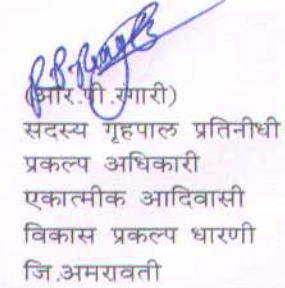 (आर.पी.रंगारी)
सदस्य गृहपाल प्रतिनीधी
प्रकल्प अधिकारी
एकात्मीक आदिवासी
विकास प्रकल्प धारणी
जि.अमरावती